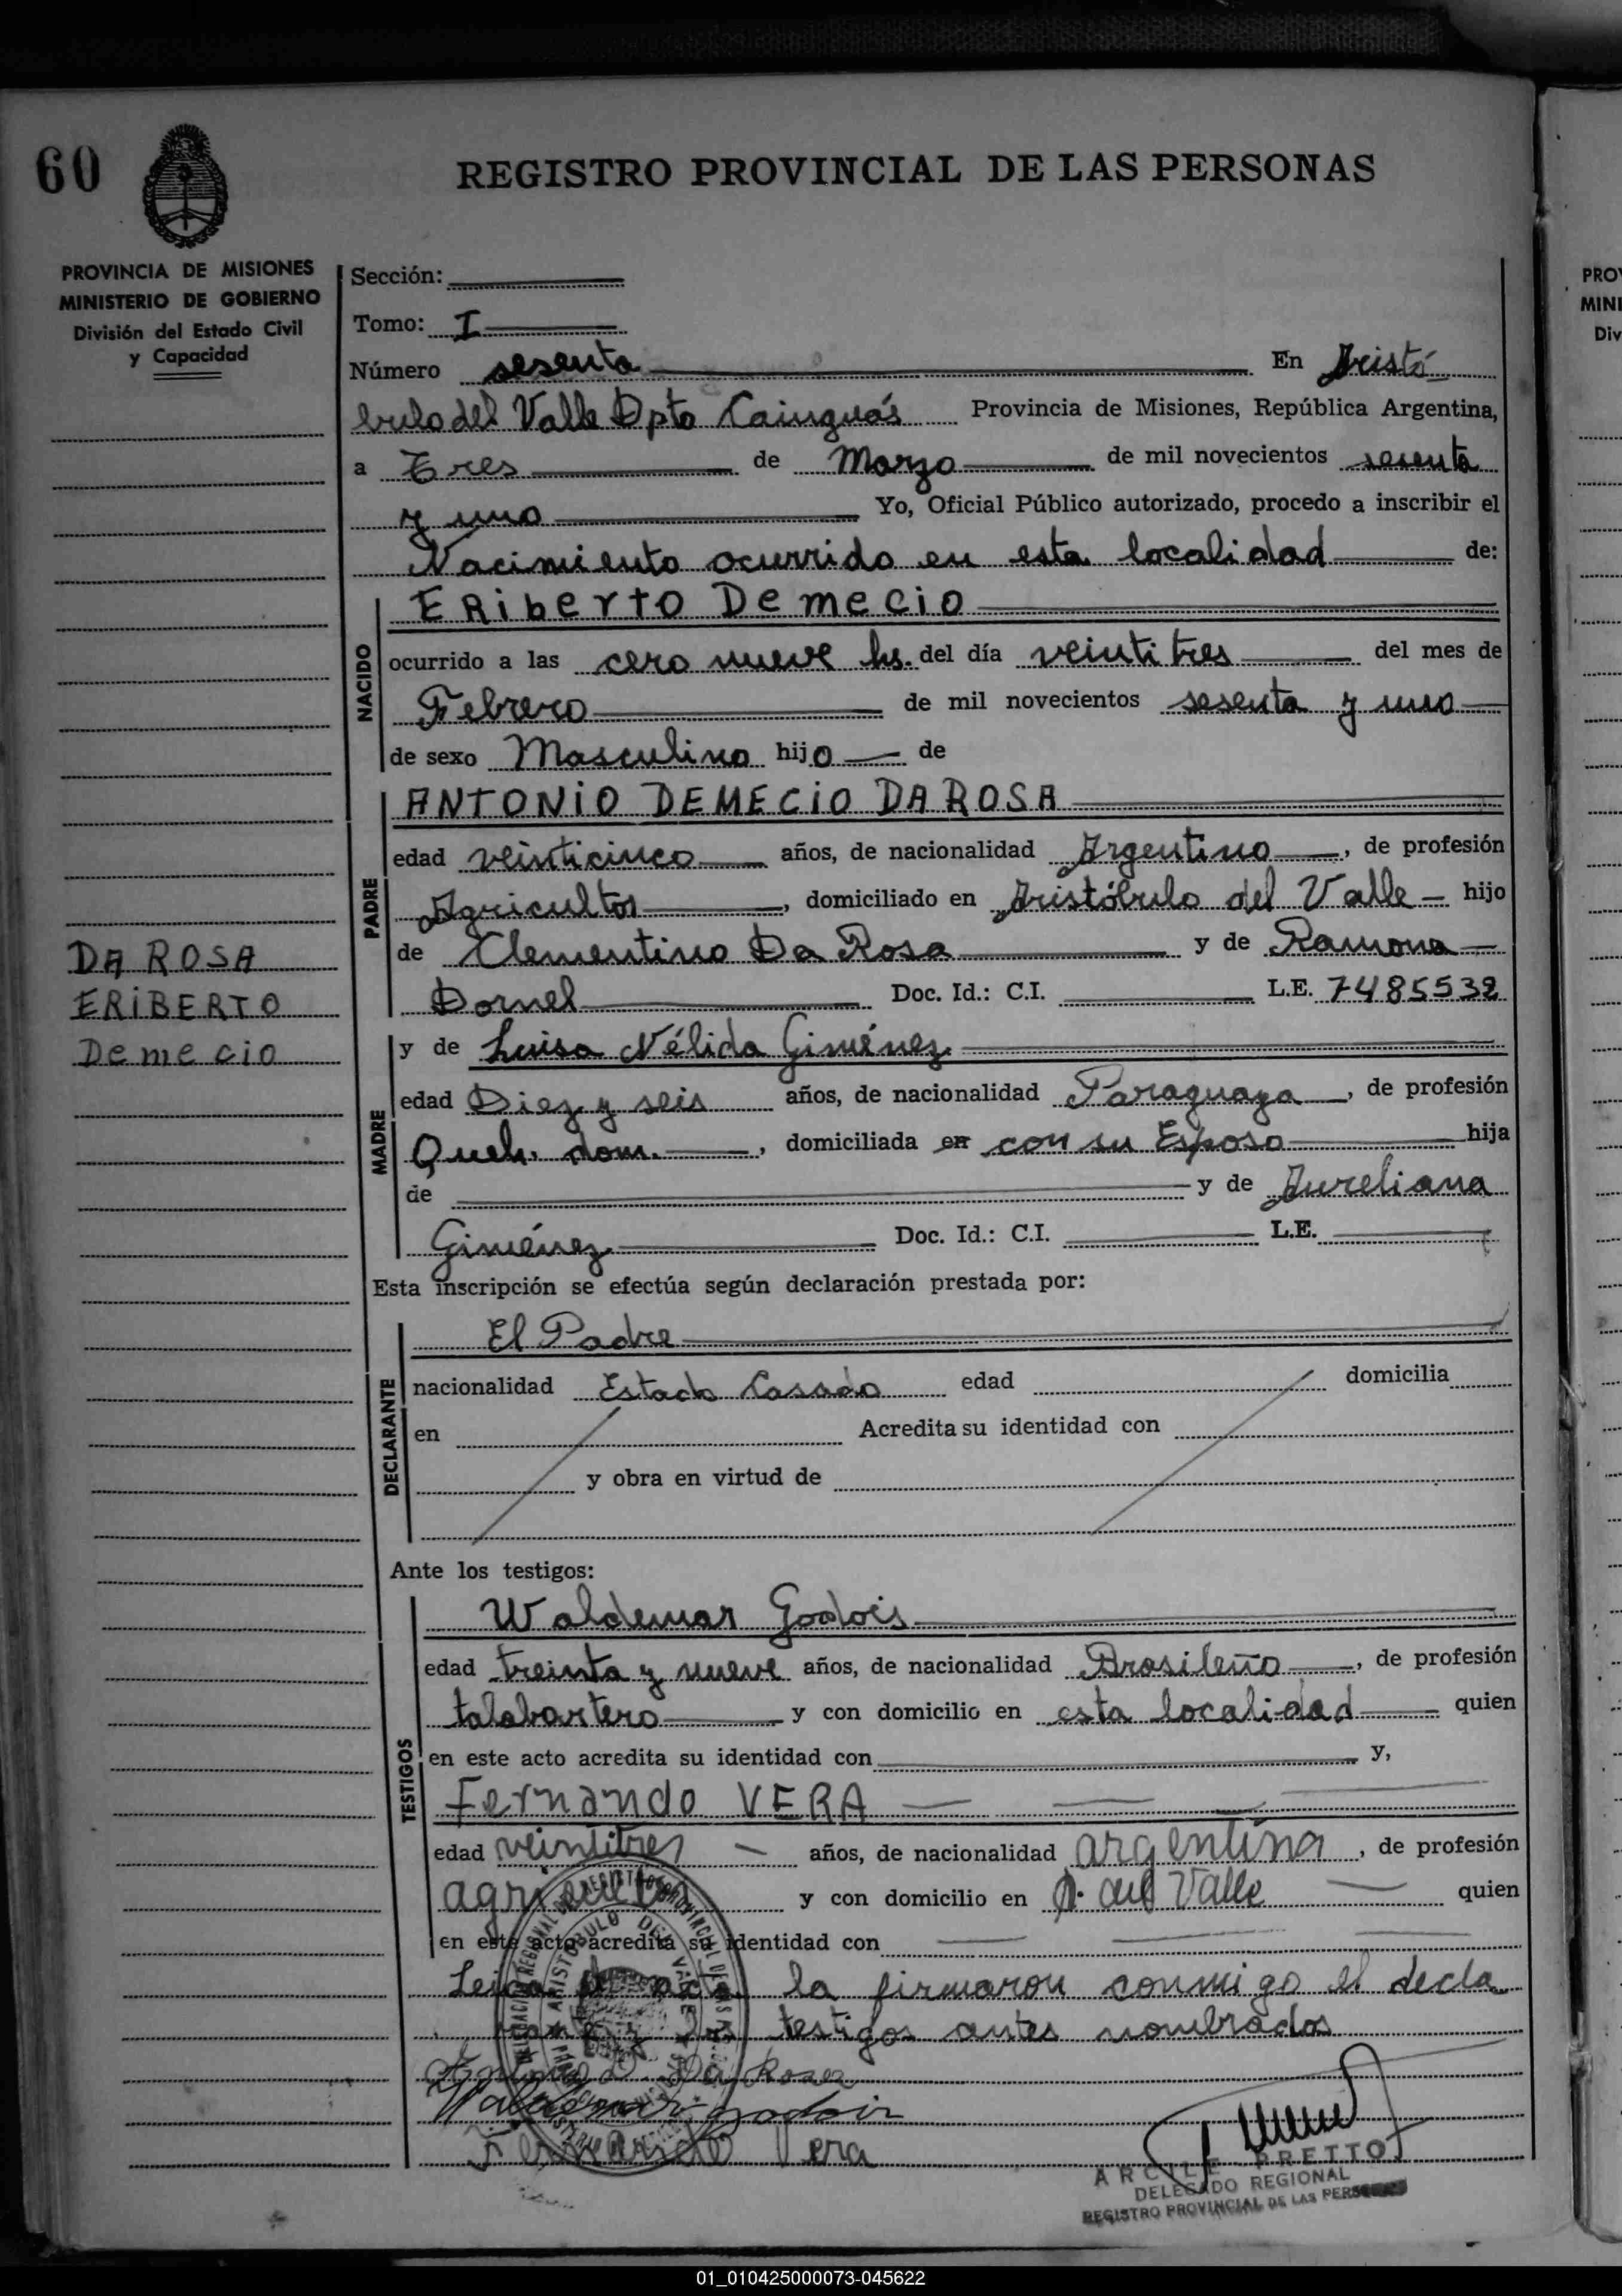 60
REGISTRO PROVINCIAL DE LAS PERSONAS
PROVINCIA DE MISIONES
MINISTERIO DE GOBIERNO
División del Estado Civil
y Capacidad
Sección:
Tomo: I
Número sesenta En Aristó
bulo del Valle Dpto Cainguás Provincia de Misiones, República Argentina,
a Tres de Marzo de mil novecientos sesenta
y uno Yo, Oficial Público autorizado, procedo a inscribir el
Nacimiento ocurrido en esta localidad de:
NACIDO
ERiberto Demecio
ocurrido a las cero nueve hs. del día veintitres del mes de
Febrero de mil novecientos sesenta y uno
de sexo Masculino hijo de
PADRE
ANTONIO DEMECIO DA ROSA
edad veinticinco años, de nacionalidad Argentino, de profesión
Agricultor, domiciliado en Aristóbulo del Valle hijo
de Clementino Da Rosa y de Ramona
Dornel Doc. Id.: C.I. L.E. 7485532
DA ROSA
ERIBERTO
Demecio
MADRE
y de Luisa Nélida Giménez
edad Diez y seis años, de nacionalidad Paraguaya, de profesión
Queh. dom., domiciliada en con su Esposo hija
de y de Aureliana
Giménez Doc. Id.: C.I. L.E.
Esta inscripción se efectúa según declaración prestada por:
DECLARANTE
El Padre
nacionalidad Estado Casado edad domicilia
en Acredita su identidad con
y obra en virtud de
Ante los testigos:
TESTIGOS
Waldemar Godois
edad treinta y nueve años, de nacionalidad Brasileño, de profesión
talabartero y con domicilio en esta localidad quien
en este acto acredita su identidad con y,
Fernando VERA
edad veintitres años, de nacionalidad argentina, de profesión
agricultor y con domicilio en A. del Valle quien
en este acto acredita su identidad con
Leida el acta la firmaron conmigo el decla
rante y los testigos antes nombrados
Antonio D. Da Rosa
Valdemar godois
Fernando Vera
DELEGADO REGIONAL
REGISTRO PROVINCIAL DE LAS PERSONAS
PRO
MINI
Div
01_010425000073-045622